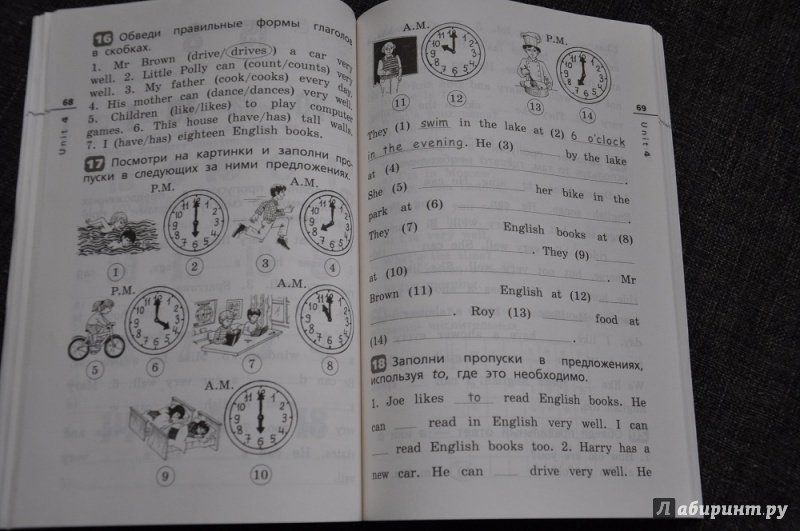 16 Обведи правильные формы глаголов
в скобках.
1. Mr Brown (drive/drives) a car very
well. 2. Little Polly can (count/counts) very
well. 3. My father (cook/cooks) every day.
4. His mother can (dance/dances) very well.
5. Children (like/likes) to play computer
games. 6. This house (have/has) tall walls.
7. I (have/has) eighteen English books.
68
Unit 4
17 Посмотри на картинки и заполни про-
пуски в следующих за ними предложениях.
P.M. A.M.
1 2 3 4
P.M. A.M.
5 6 7 8
A.M.
9 10
A.M. P.M.
11 12 13 14
69
Unit 4
They (1) swim in the lake at (2) 6 o'clock
in the evening. He (3) ___ by the lake
at (4) ___.
She (5) ___ her bike in the
park at (6) ___.
They (7) ___ English books at (8)
___. They (9) ___
at (10) ___. Mr
Brown (11) ___ English at (12)
___. Roy (13) ___ food at
(14) ___.
18 Заполни пропуски в предложениях,
используя to, где это необходимо.
1. Joe likes to read English books. He
can ___ read in English very well. I can
___ read English books too. 2. Harry has a
new car. He can ___ drive very well. He
Лабиринт.ру